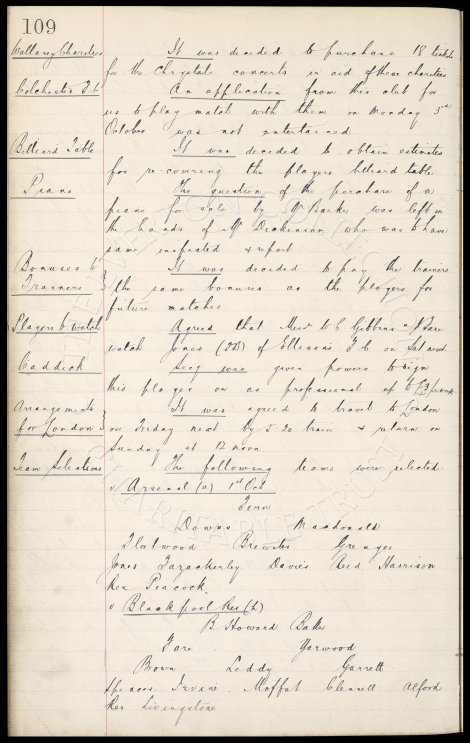 109
Wallasey Charities It was decided to purchase 18 tickets
for the Chrystal concerts in aid of these charities
Colchester F.C An application from this club for
us to play match with them on Monday 3rd
October was not entertained.
Billiard Table It was decided to obtain estimates
for re-covering the players billiard table.
Piano The question of the purchase of a
piano for sale by Mr Barker was left in
the hands of Mr Dickinson, who was to have
same inspected & report
Bonuses to It was decided to pay the trainers
Trainers the same bonuses as the players for
future matches
Players to watch Agreed that Messrs W C Gibbins & J Fare
watch Jones (2B) of Ellisons F C on Sat next.
Caddick Secy was given powers to sign
this player on as professional at to £3 per week
Arrangements It was agreed to travel to London
for London on Friday next by 5-20 train & return on
Sunday at 12 noon
Team Selections The following teams were selected.
v Arsenal (a) 1st Oct
Fern
Downs Macdonald
Fleetwood Brewster Grenyer
Jones Fazackerley Davies Reid Harrison
Res Peacock.
v Blackpool Res (h)
B Howard Baker
Fare Yarwood
Brown Leddy Garrett
Spencer Irvine Moffat Clennell Alford
Res Livingstone